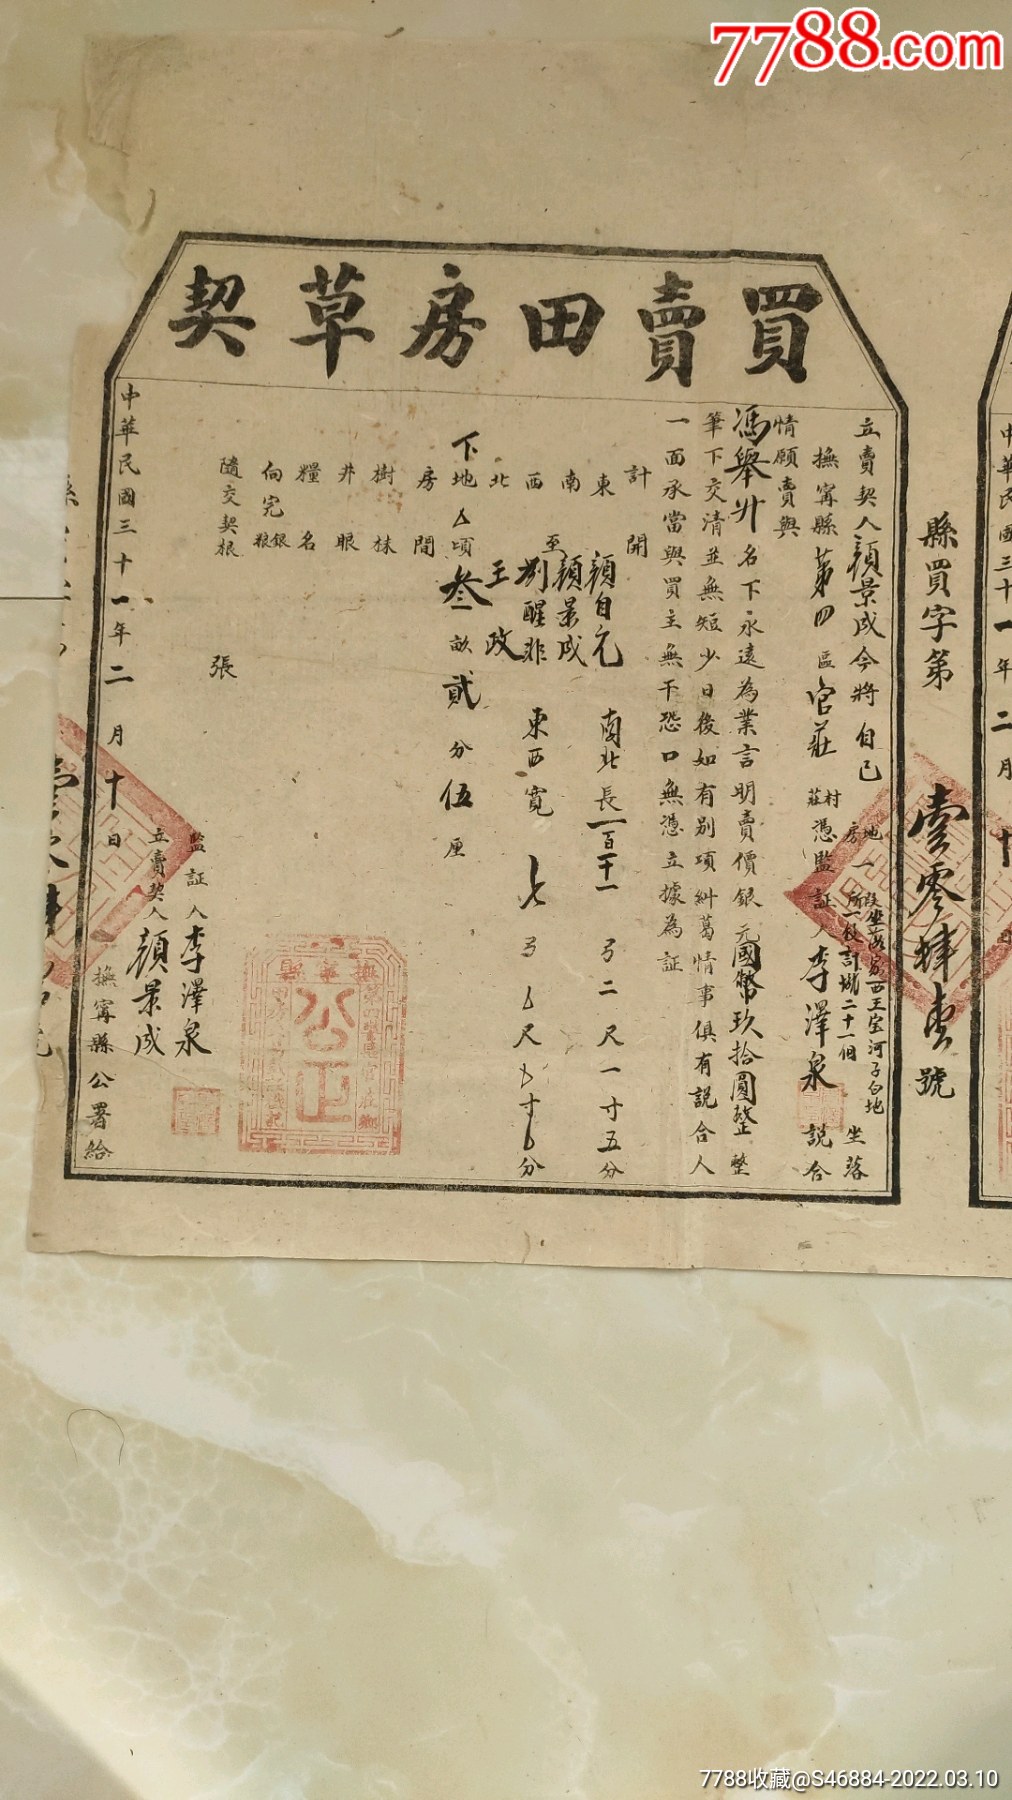 7788.com
買賣田房草契
縣買字第壹零肆壹號
立賣契人顏景成今將自己地房一段所坐落家西王宝河子白地坐落
撫寧縣第四區官莊村莊憑監証人李澤泉說合
情願賣與
馮舉升名下永遠為業言明賣價銀元國幣玖拾圓整整
筆下交清並無短少日後如有別項糾葛情事俱有說合人
一面承當與買主無干恐口無憑立據為証
計開
東顏自元南北長一百十一弓二尺一寸五分
南至顏景成
西劉醒非東西寬七弓尺寸分
北王政
下地頃叁畝貳分伍厘
房間
樹株
井眼
糧名
向完銀粮
隨交契根張
監証人李澤泉
立賣契人顏景成
中華民國三十一年二月十日
撫寧縣公署給
撫寧縣
公正
中華民國三十一年二月十
7788收藏@S46884-2022.03.10